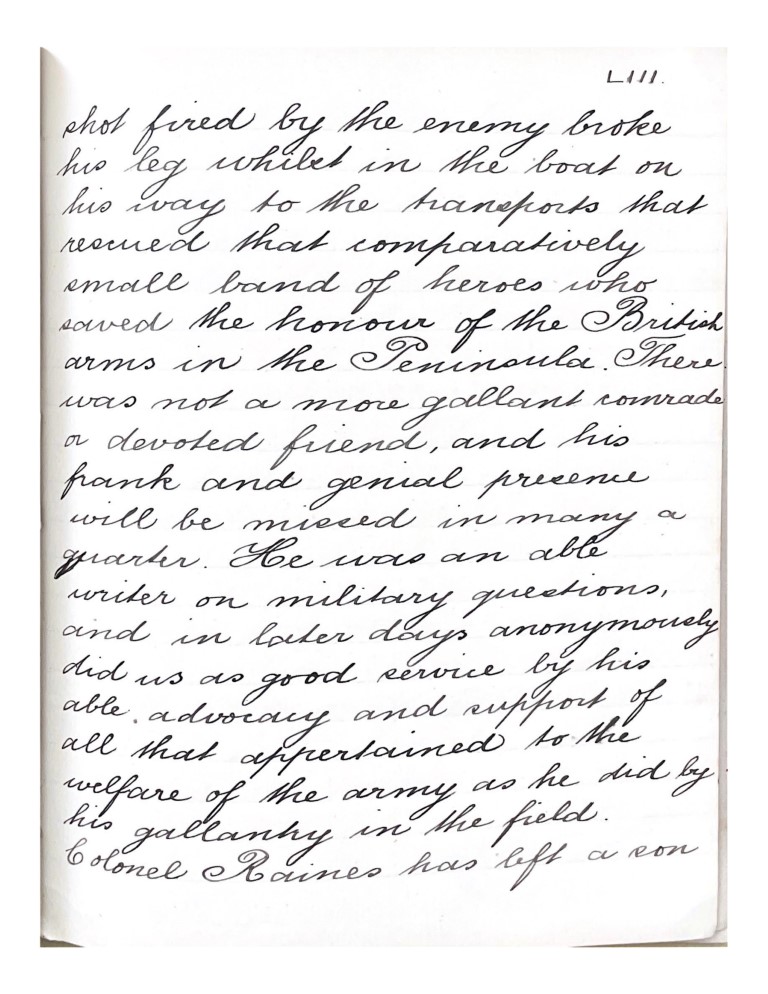 LIII.
shot fired by the enemy broke
his leg whilst in the boat on
his way to the transports that
rescued that comparatively
small band of heroes who
saved the honour of the British
arms in the Peninsula. There
was not a more gallant comrade
or devoted friend, and his
frank and genial presence
will be missed in many a
quarter. He was an able
writer on military questions,
and in later days anonymously
did us as good service by his
able advocacy and support of
all that appertained to the
welfare of the army as he did by
his gallantry in the field.
Colonel Raines has left a son